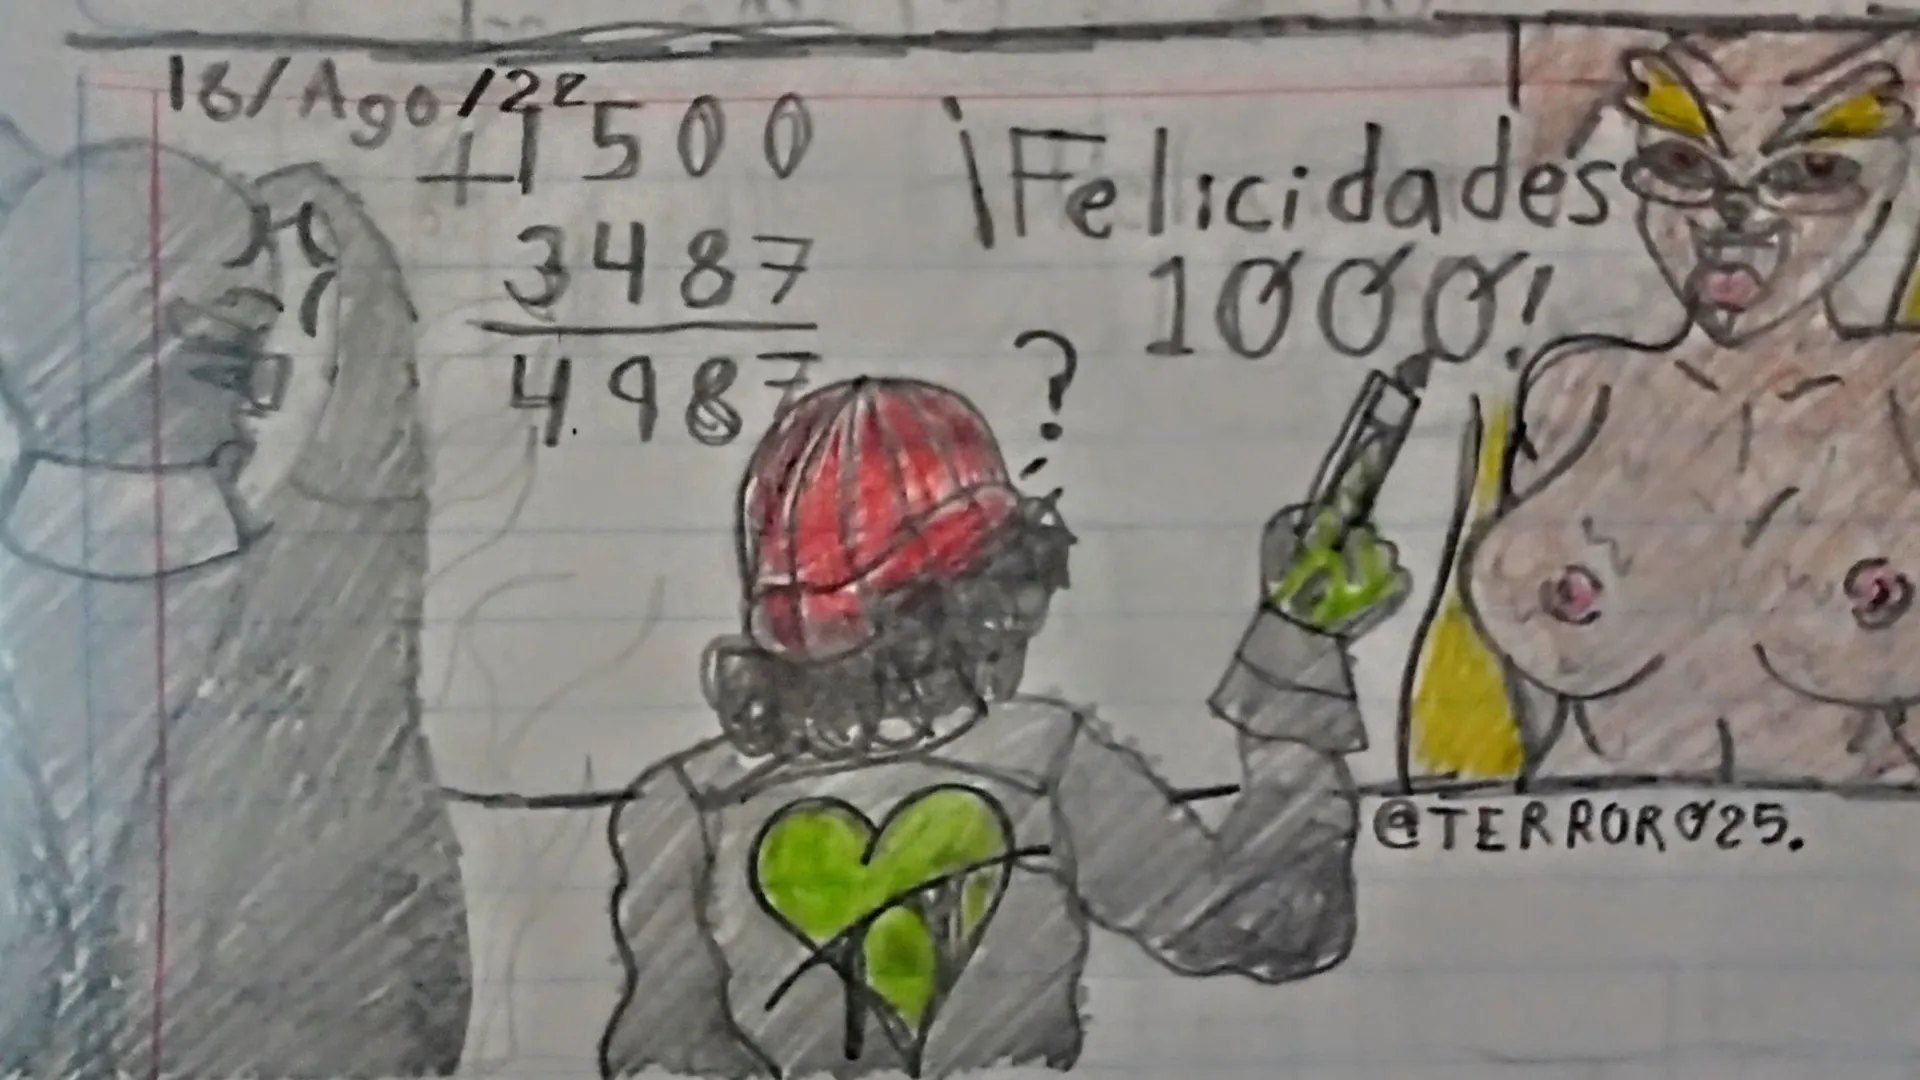 18/Ago/22
+1500
3487
4987
¡Felicidades
1000!
?
@TERROR025.